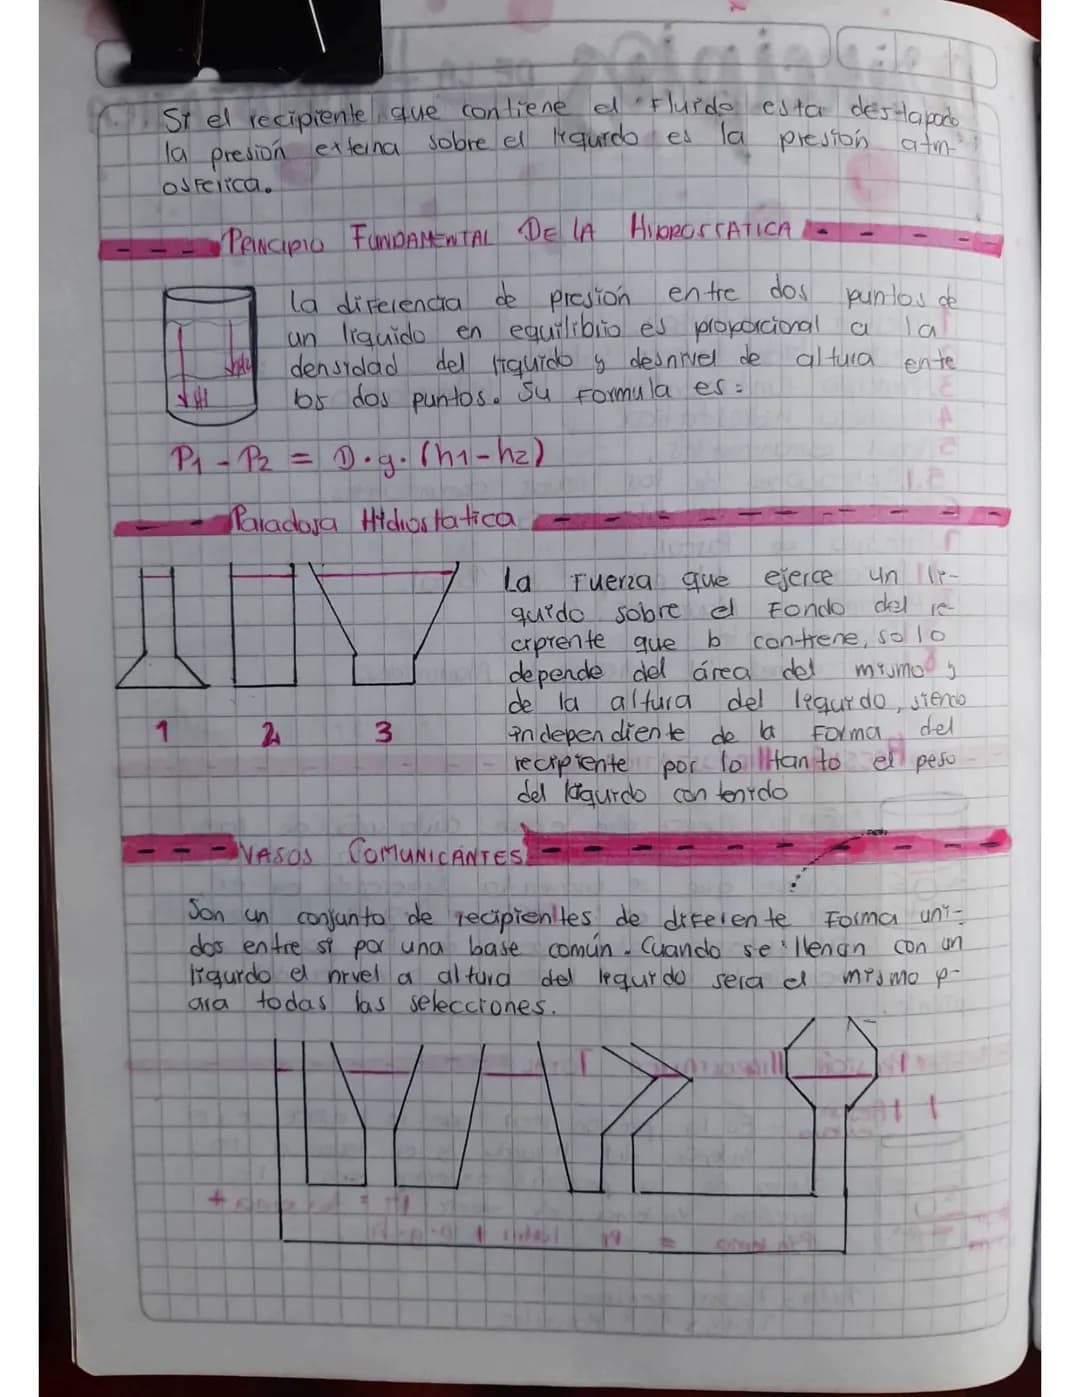 Si el recipiente que contiene el Fluido esta destapado
la presión externa sobre el liquido es la presión atm-
osferica.
PRINCIPIO FUNDAMENTAL DE LA HIDROSTATICA
La diferencia de presión entre dos puntos de
un liquido en equilibrio es proporcional a la
densidad del liquido y desnivel de altura ente
los dos puntos. Su Formula es:
P1 - P2 = D.g.(h1-h2)
Paradoja Hidrostatica
La Fuerza que ejerce un li-
quido sobre el Fondo del re-
cipiente que lo contiene, solo
depende del área del mismo y
de la altura del liquido, siendo
independiente de la Forma del
recipiente por lo tanto el peso
del liquido contenido
1 2 3
VASOS COMUNICANTES
Son un conjunto de recipientes de diferente Forma uni-
dos entre si por una base común. Cuando se llenan con un
liquido el nivel a altura del liquido sera el mismo p-
ara todas las selecciones.